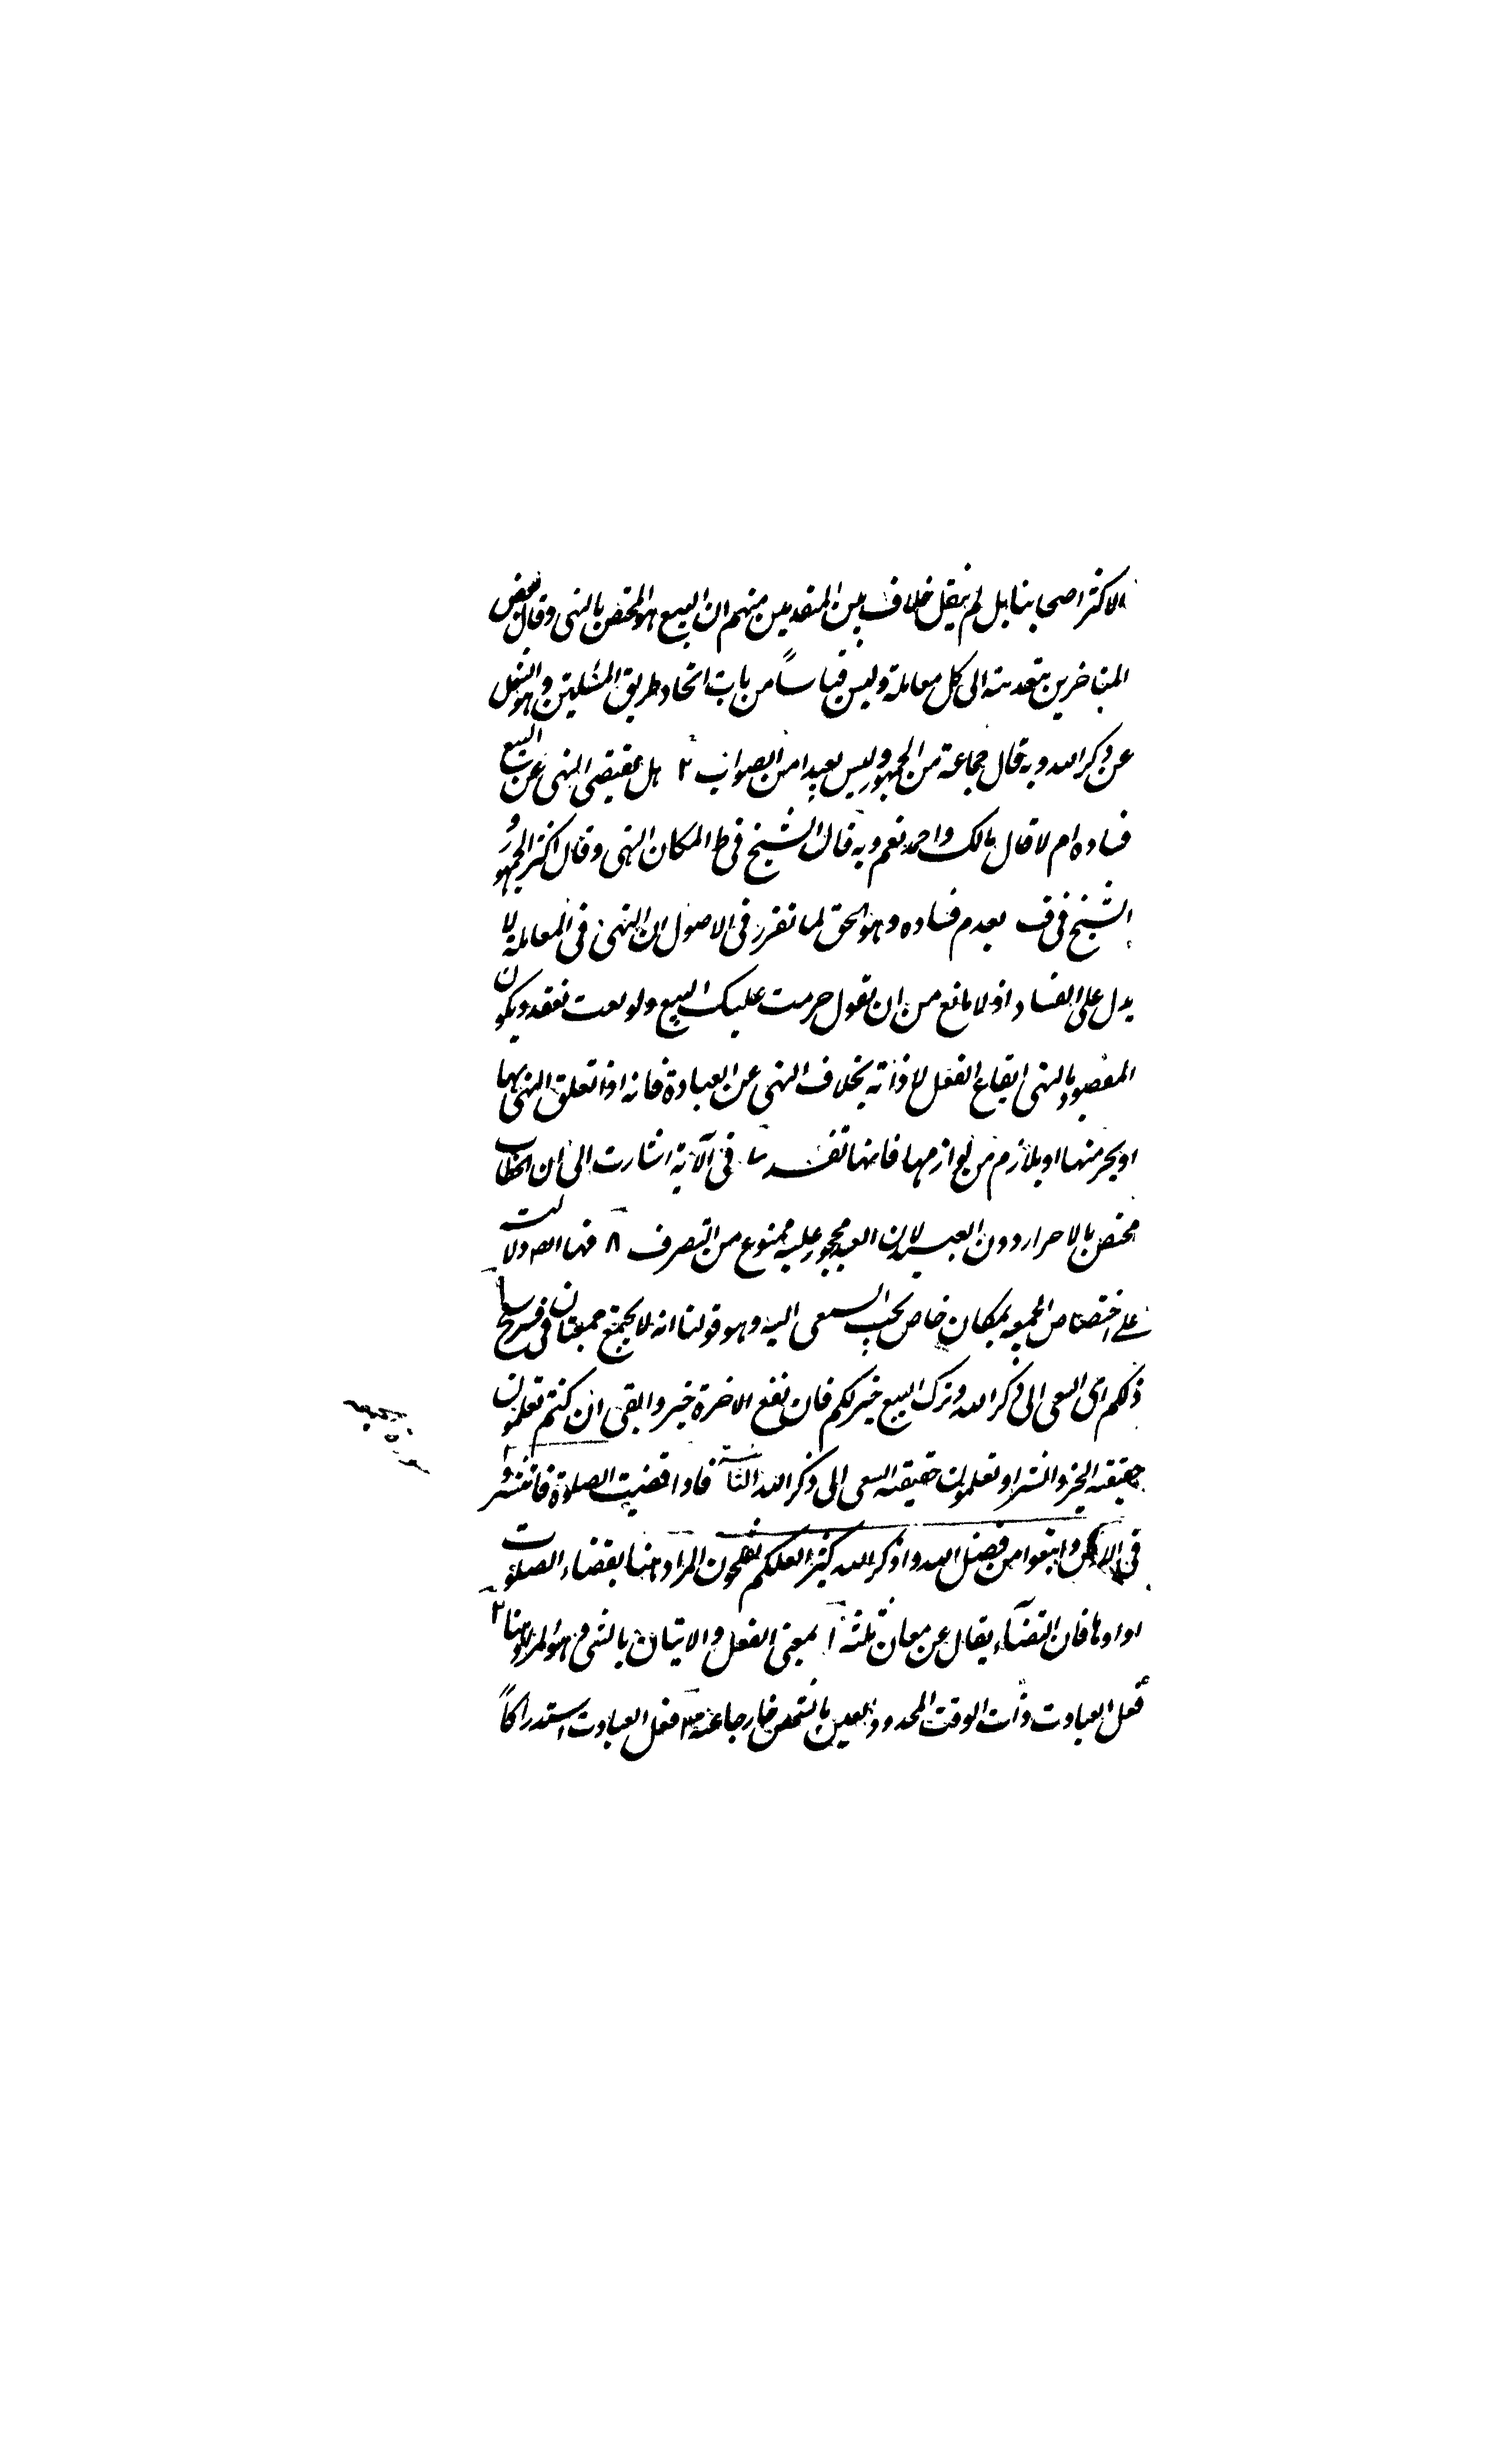 الاكثر اصحابنا بل لم ينقل خلاف بين المتقدمين منهم ان البيع هو المختص بالنهى وقال بعض
المتاخرين بتعديته الى كل معاملة وليس قياساً من باب اتحاد طريق المسئلتين وهو الشغل
عن ذكر الله وبه قال جماعة من الجمهور وليس بعيدا من الصواب ٢ هل يقتضى النهى عن البيع
فساده ام لا قال مالك واحمد نعم وبه قال الشيخ فى ط المكان النهى وقال اكثر الجمهور
الشيخ فى ف بعدم فساده وهو الحق لما تقرر فى الاصول ان النهى فى المعاملة لا
يدل على الفساد اذ لا مانع من ان يقول حرمت عليك البيع ولو بعت نعقد ويكون
المقصود بالنهى ايقاع الفعل لا ذاته بخلاف النهى عن العبادة فانه اذا تعلق النهى بها
او بجز منها او بلازم من لوازمها فانها تفسد ٧ فى الآية اشارت الى ان الخطاب
مختص بالاحرار دون العبيد لان العبد محجور عليه ممنوع من التصرف ٨ فيها دلالت
على اختصاص الجمعه بمكان خاص يجب السعى اليه وهو قولنا انه لا يجتمع جمعتان فى فرسخ
ذلكم اى السعى الى ذكر الله وترك البيع خير لكم فان نفع الاخرة خير وابقى ان كنتم تعلمون
حقيقة الخير والشر او تعلمون حقيقة السعى الى ذكر الله الثانية فاذا قضيت الصلوة فانتشروا
فى الارض وابتغوا من فضل الله واذكر الله كثيرا لعلكم تفلحون المراد هنا بقضاء الصلوت
اداوها فان القضآء يقال عن معان ثلثة ١ بمعنى الفعل والاتيان بالشى وهو المراد هنا ٢
فعل العبادت ذات الوقت المحدود المعين بالشخص خارجا عنه ٣ فعل العبادت استدراكاً